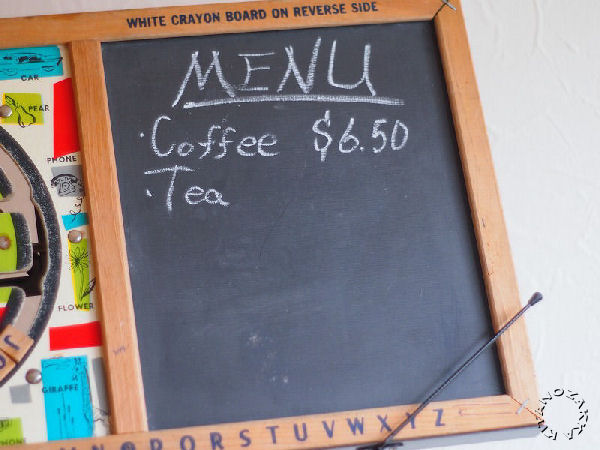 WHITE CRAYON BOARD ON REVERSE SIDE
MENU
· Coffee $6.50
· Tea
CAR
PEAR
PHONE
FLOWER
GIRAFFE
P Q R S T U V W X Y Z